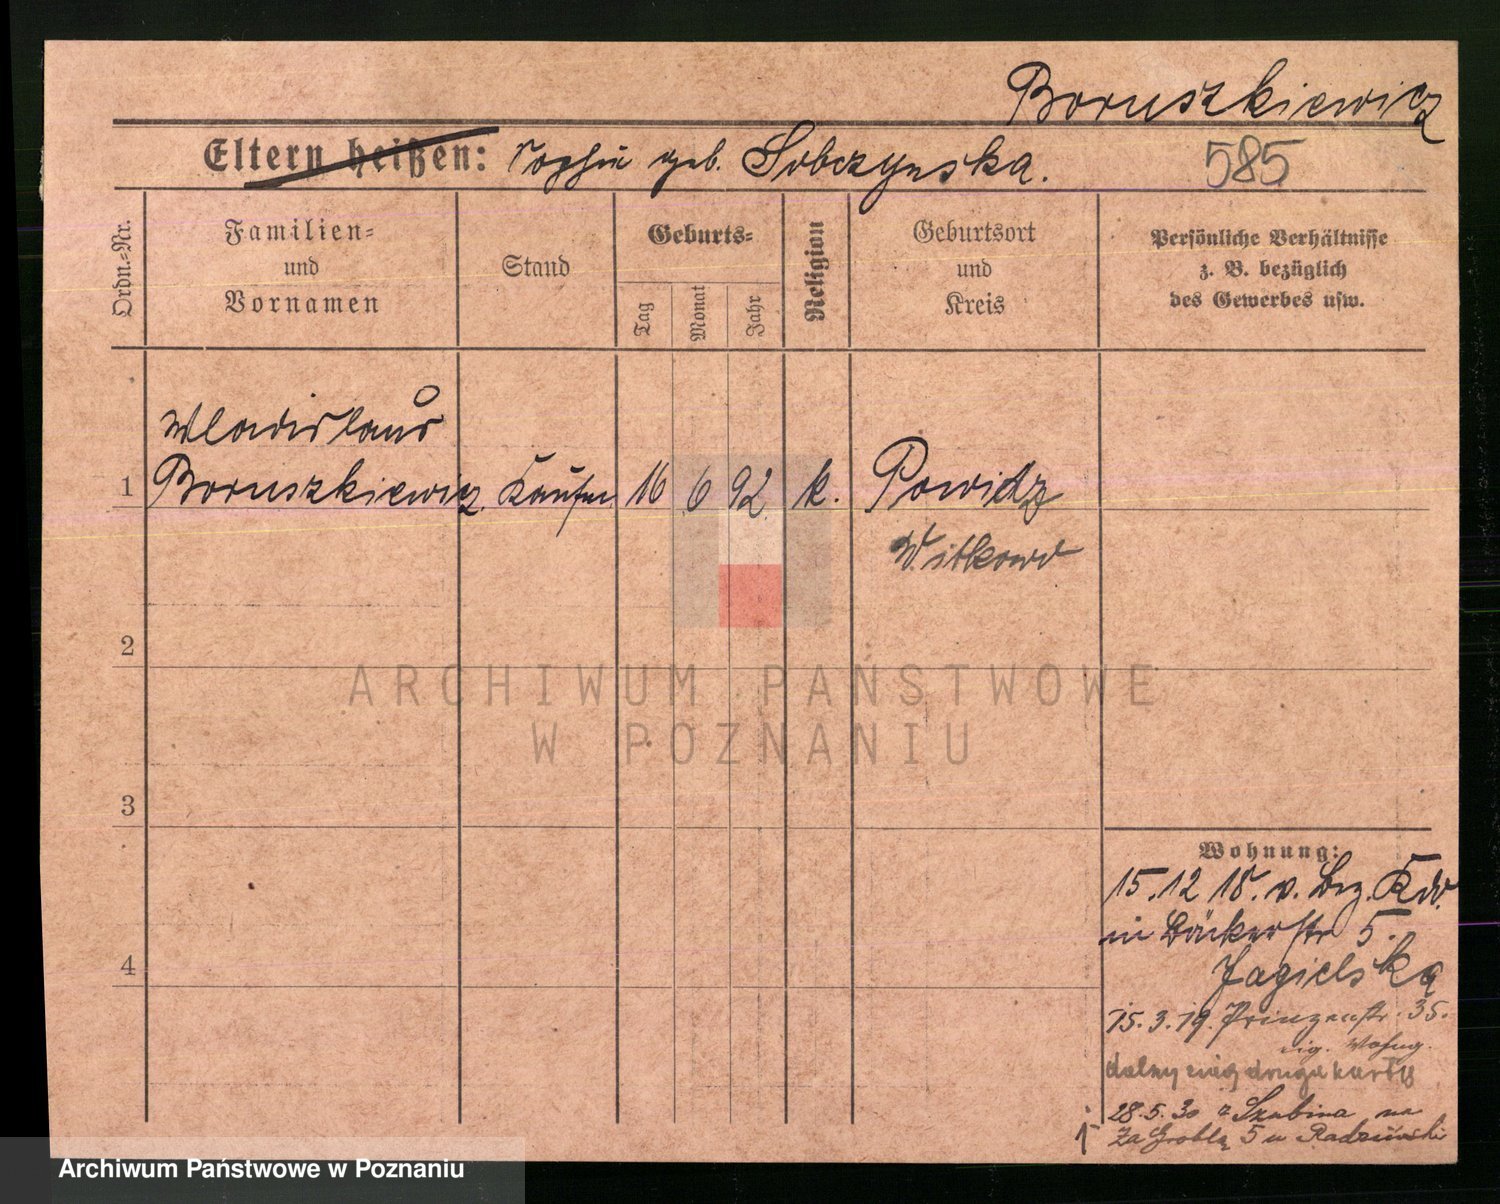 Boruszkiewicz
Eltern heißen: Sophie geb. Sobczynska.
585
Ordn.-Nr.
Familien-
und
Vornamen
Stand
Geburts-
Tag
Monat
Jahr
Religion
Geburtsort
und
Kreis
Persönliche Verhältnisse
z. B. bezüglich
des Gewerbes usw.
Wladislaus
1 Boruszkiewicz. Kaufm. 16 6 92. k. Powidz
Witkowo
2
ARCHIWUM PANSTWOWE
W POZNANIU
3
Wohnung:
15.12 18. v. Bez. Kdo.
in Bäckerstr 5.
4
Jagielska
15.3.19. Prinzenstr. 35.
eig. Wohng.
dalszy ciąg druga karta
28.5.30 z Szubina na
Za Groblą 5 u Radziński
Archiwum Państwowe w Poznaniu